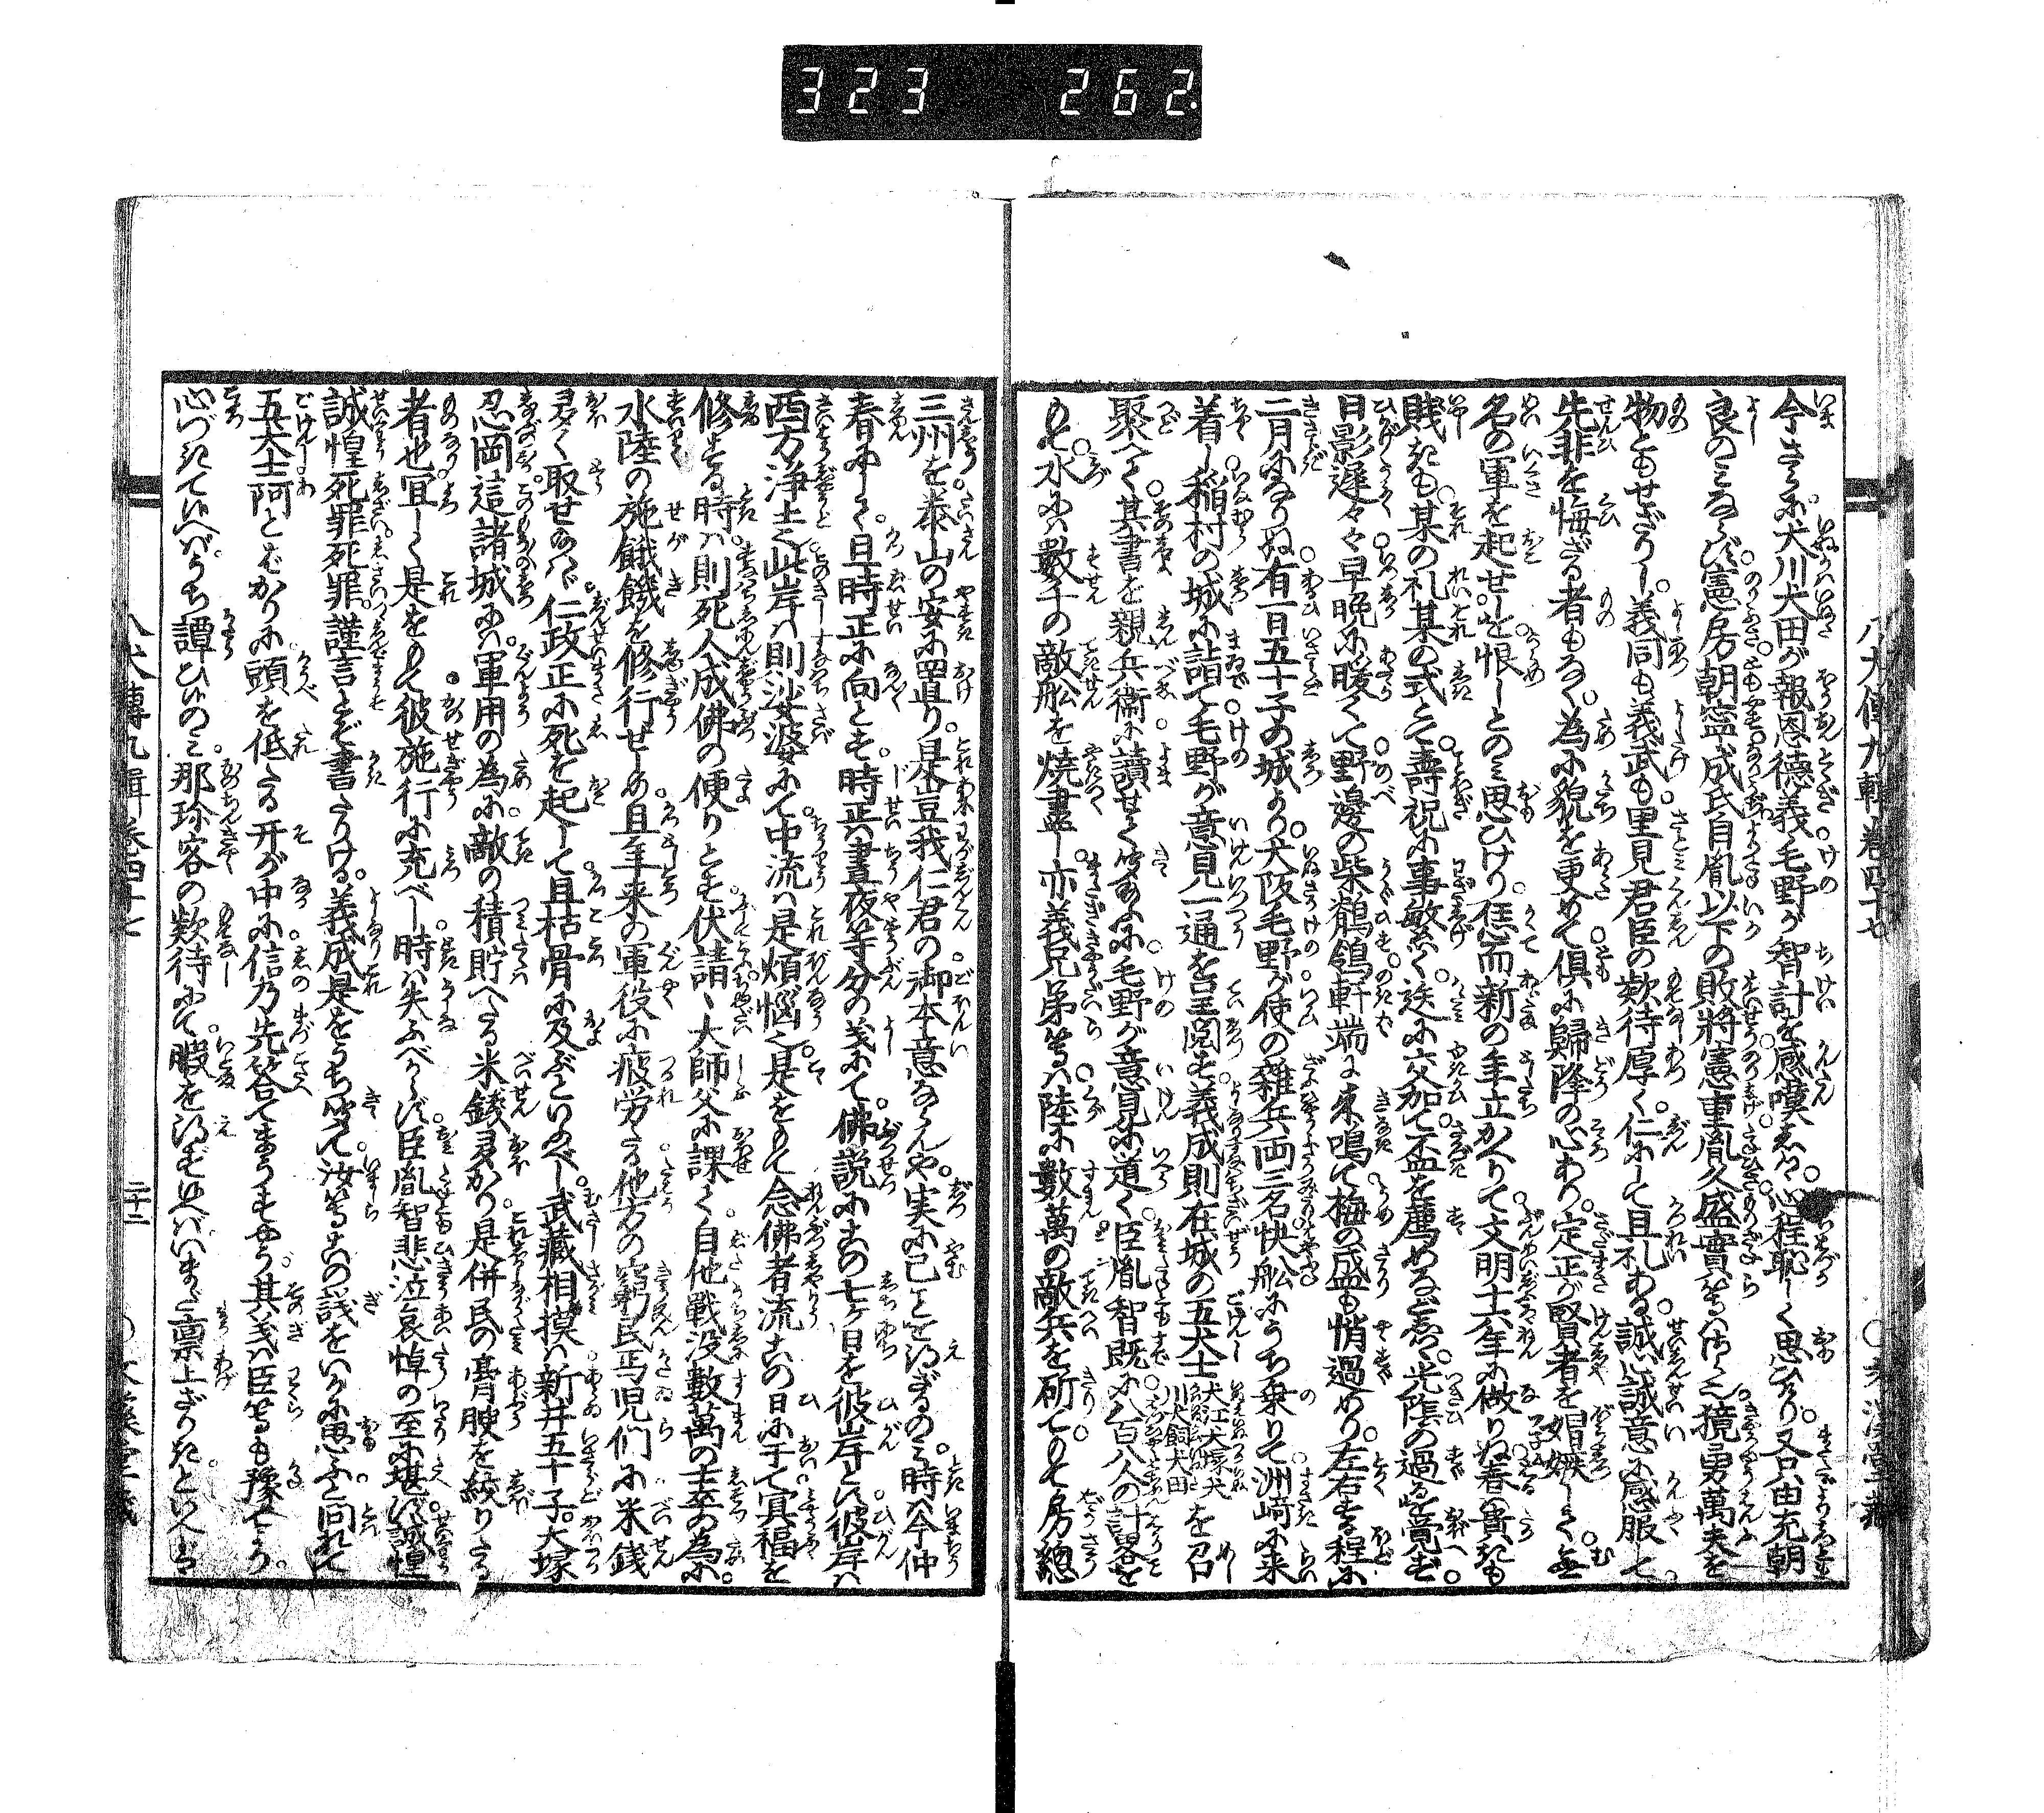 323 262
八犬傳九輯卷四十七
今さらに犬川犬田が報恩德義毛野が智計を感嘆しつゝ心裡恥しく思ひけり又只由充朝
良のみならず憲房朝寧成氏自胤以下の敗將憲重胤久盛實等はさら也獷勇萬夫を
物ともせざりし義同も義武も里見君臣の欵待厚く仁にして且礼ある誠心誠意に感服して
先非を悔ざる者もなく為に貌を更めて俱に歸降の心あり定正が賢者を媢嫉しく無
名の軍を起せしを恨しとのみ思ひけり恁而新の年立かへりて文明十六年に做りぬ春は貴きも
賎きも某の礼某の式とて壽祝に事敏系く迭に交加て盃を薦めなどしつゝ光陰の過るを覚ず
日影遲々早晩に暖くて野邊の柴鶺鴒軒端に來鳴て梅の盛も悄過めり左右する程に
二月になりぬ有一日五十子の城より犬阪毛野が使の雜兵両三名快舩にうち乗りて洲崎に来
着し稲村の城に詣て毛野が意見一通を呈閲す義成則在城の五犬士犬江犬塚犬川犬飼犬田を召
聚へて其書を親兵衞に讀せて聞給ふに毛野が意見に道く臣胤智既に八百八人の計畧を
もて水には數千の敵舩を焼盡し亦義兄弟等は陸に數萬の敵兵を斫てもて房總
三州を泰山の安に置り是豈我仁君の御本意ならんや実に已ことを得ざるのみ時今仲
春にして且時正に向とす時正は晝夜等分の義にて佛説にこの七ヶ日を彼岸といふ彼岸は
西方浄土也此岸は則娑婆にて中流は是煩惱也是をもて念佛者流この日に于て冥福を
修する時は則死人成佛の便りとす伏請大師父に課て自他戰没數萬の士卒の為に
水陸の施餓饑を修行せしめ且年来の軍役に疲労たる他方の窮民丐児們に米錢
多く取せ給はゞ仁政正に死を起して且枯骨に及ぶといふべし武藏相摸は新井五十子大塚
忍岡這諸城には軍用の為に敵の積貯へたる米錢多かり是併民の膏腴を絞りたる
者也宜しく是をもて彼施行に充べし時は失ふべからず臣胤智悲泣哀悼の至に堪ず誠惶
誠惶死罪死罪謹言とぞ書たりける義成是をうち聞て汝等この議をいかに思ふと問れて
五犬士阿とばかりに頭を低たる开が中に信乃先答てまうすやう其義は臣等も豫てより
心づきていへばうち譚ひしのみ那珎客の欵待にて暇を得ず
八犬傳九輯卷四十七
二十二